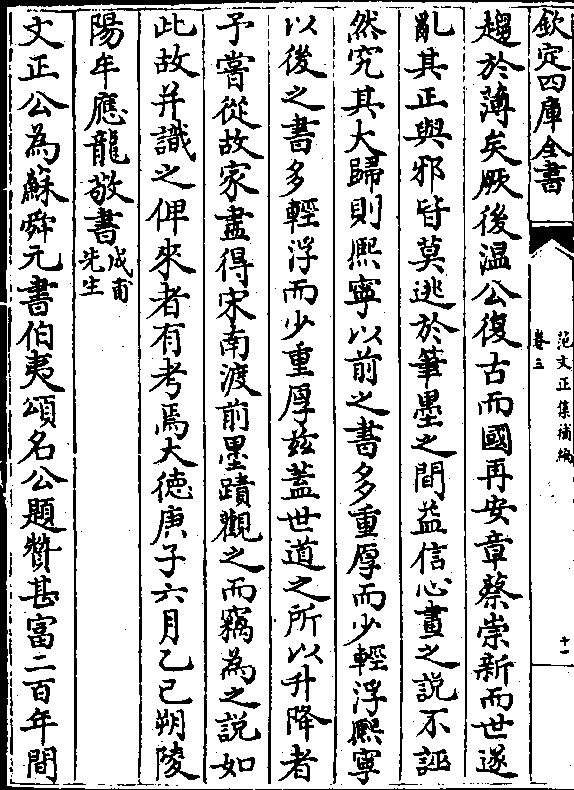 欽定四庫全書
范文正集補編
卷三
十一
趨於薄矣厥後温公復古而國再安章蔡崇新而世遂
亂其正與邪皆莫逃於筆墨之間益信心畫之說不誣
然究其大歸則熙寧以前之書多重厚而少輕浮熙寧
以後之書多輕浮而少重厚兹蓋世道之所以升降者
予嘗從故家盡得宋南渡前墨蹟觀之而竊為之說如
此故并識之俾來者有考焉大徳庚子六月乙己朔陵
陽牟應龍敬書成甫先生
文正公為蘇舜元書伯夷頌名公題贊甚富二百年間